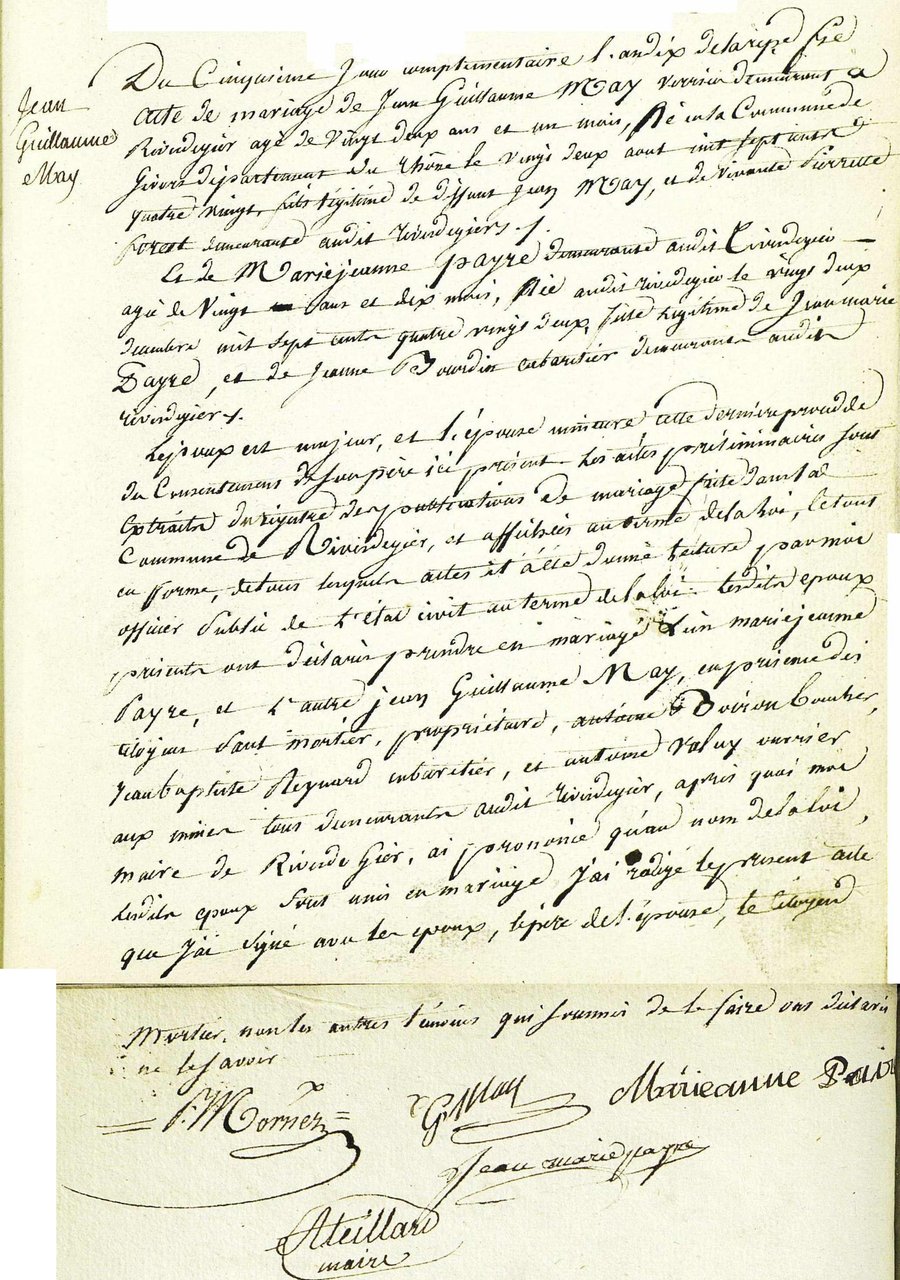 Jean
Guillaume
May
Du Cinquieme jour complementaire l'an dix de la rep. fse
acte de mariage de Jean Guillaume May verrier demeurant a
Rivedegier agé de vingt deux ans et un mois, Né en la Commune de
Givors département du rhône le vingt deux aout mil sept cents
quatre vingt, fils légitime de deffunt Jean May, et de vivante Pierrette
forest demeurante audit rivedegiers ./.
Et de Mariejeanne payre demeurante audit Rivedegier —
agée de Vingt ans et dix mois, Née audit rivedegier le vingt deux
decembre mil sept cents quatre vingt deux, fille légitime de Jeanmarie
Payre, et de Jeanne Bourdin cabaretier demeurants audit
rivedegier ./.
L'époux est majeur, et l'épouse mineure cette derniere procédde
du Consentement de son père ici présent. Les actes préliminaires sont
Extraits du régistre des publications de mariage faite dans la
Commune de Rivedegier, et affichés au terme de la loi, le tout
en forme, de tous lesquels actes il a été donné lecture par moi
officier Public de l'état civil au terme de la loi. Lesdits epoux
présents ont déclarés prendre en mariage l'un mariejeanne
Payre, et l'autre jean Guillaume May, en présence des
citoyens Paul mortier, propriétaire, antoine Boiron Boucher,
Jeanbaptiste Reynard cabaretier, et antoine Valuy ouvrier
aux mines tous demeurants audit rivedegier, après quoi moi
maire de Rive de Gier, ai prononcé qu'au nom de la loi,
lesdits epoux sont unis en mariage j'ai rédigé le présent acte
que j'ai signé avec les epoux, le père de l'épouse, le citoyen
Mortier, non les autres témoins qui sommés de le faire ont déclarés
ne le savoir
G May
Marieanne Paire
Jean marie payre
Ateillard
maire